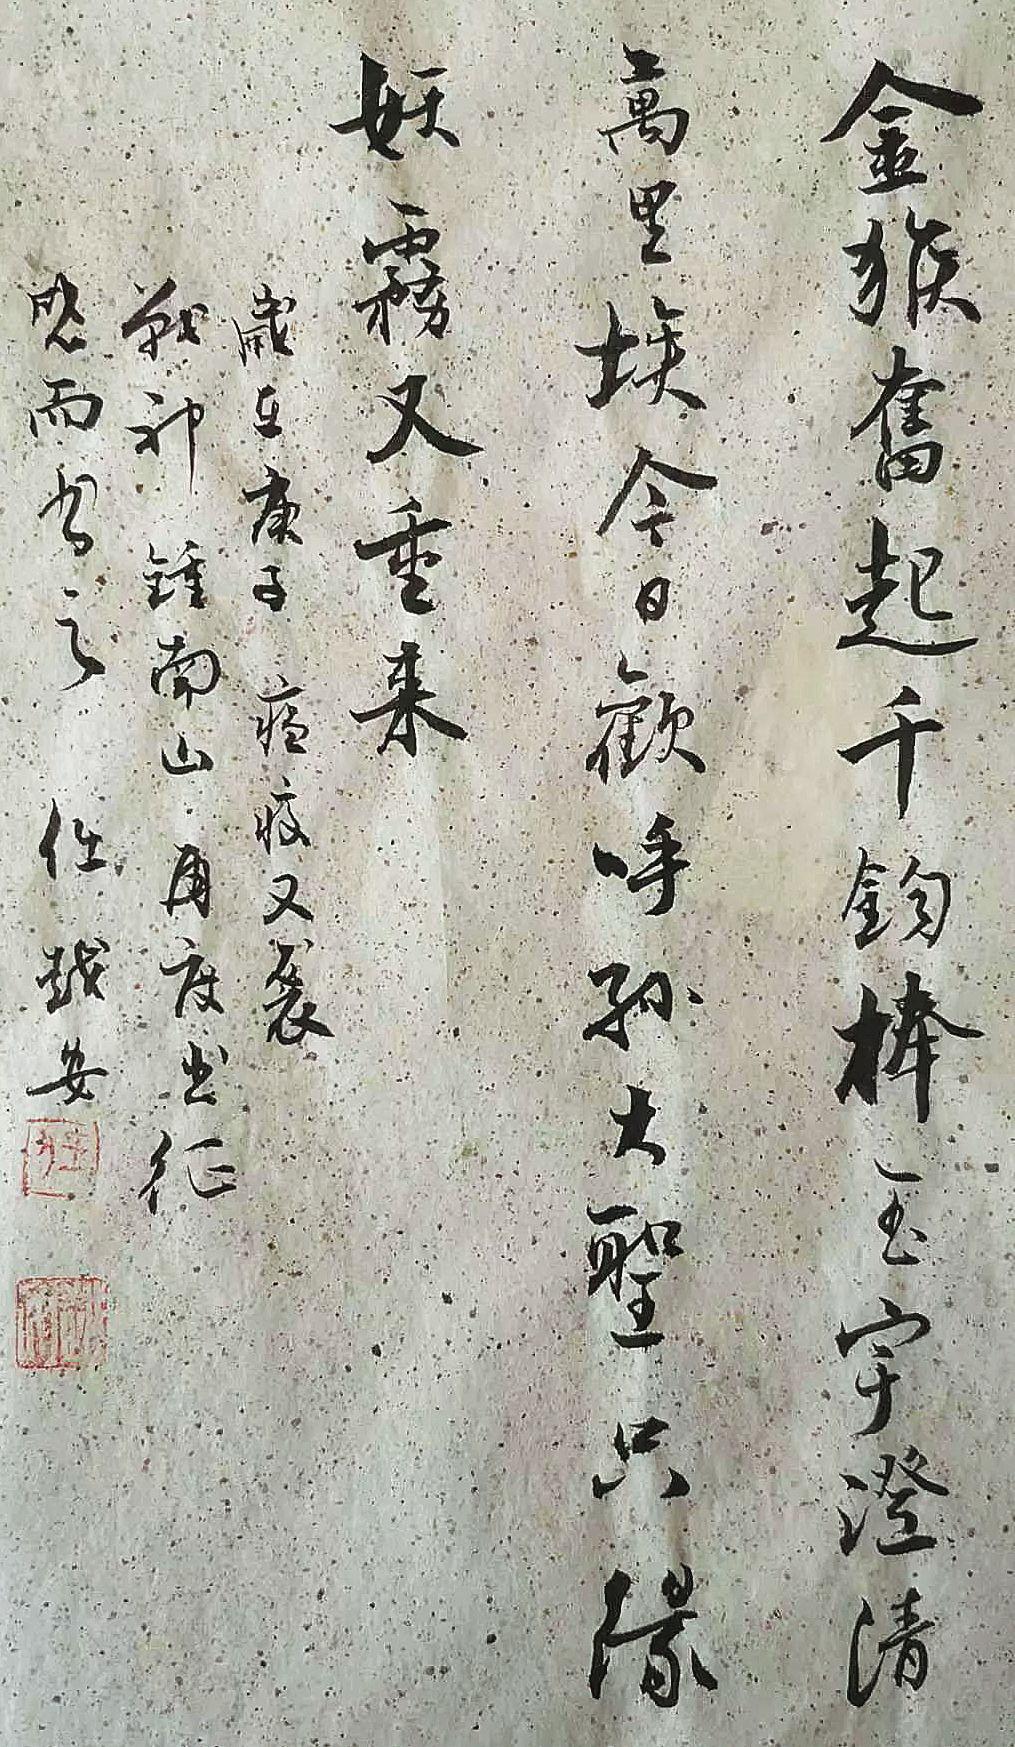 金猴奮起千鈞棒玉宇澄清
萬里埃今日歡呼孫大聖只緣
妖霧又重来
歲在庚子瘟疫又襲
戰神鍾南山再度出征
而书之 任越安